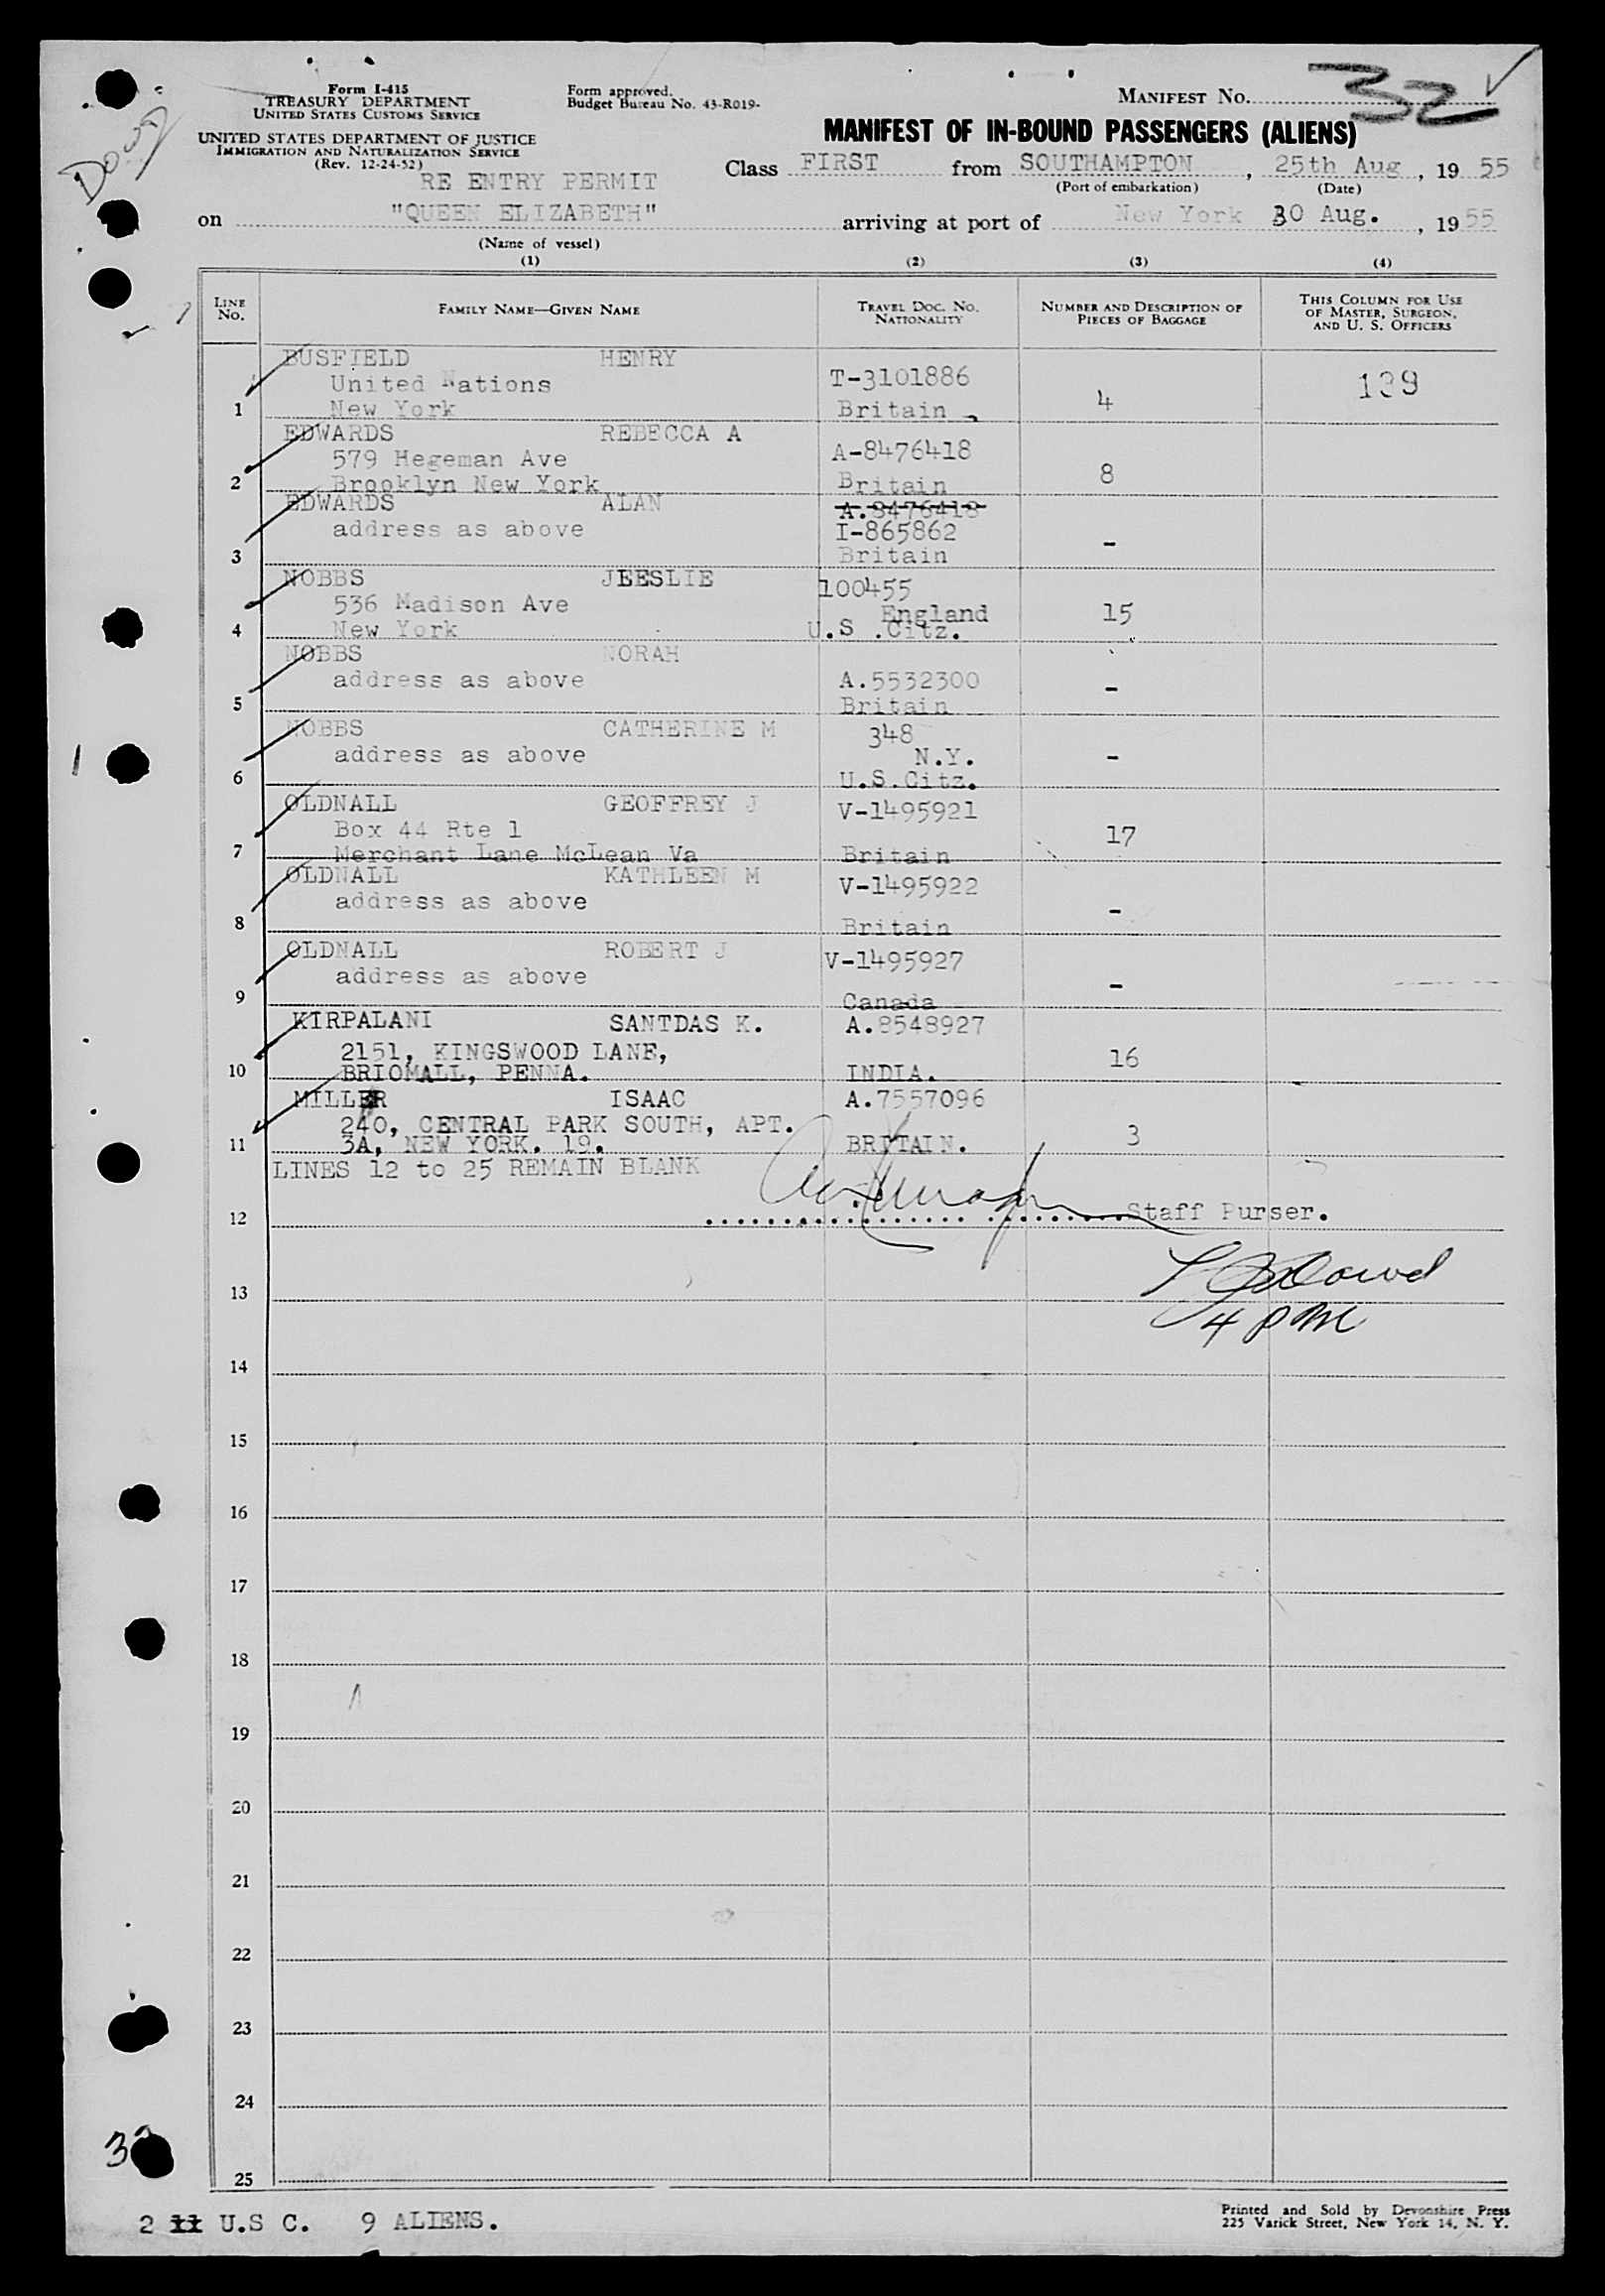 Form I-415
TREASURY DEPARTMENT
UNITED STATES CUSTOMS SERVICE
UNITED STATES DEPARTMENT OF JUSTICE
IMMIGRATION AND NATURALIZATION SERVICE
(Rev. 12-24-52)
Form approved.
Budget Bureau No. 43-R019-
MANIFEST No. 32
MANIFEST OF IN-BOUND PASSENGERS (ALIENS)
RE ENTRY PERMIT
Class FIRST from SOUTHAMPTON, 25th Aug, 19 55
(Port of embarkation) (Date)
on "QUEEN ELIZABETH" arriving at port of New York 30 Aug., 19 55
(Name of vessel)
(1) (2) (3) (4)
LINE No. FAMILY NAME—GIVEN NAME TRAVEL DOC. No. NATIONALITY NUMBER AND DESCRIPTION OF PIECES OF BAGGAGE THIS COLUMN FOR USE OF MASTER, SURGEON, AND U. S. OFFICERS
BUSFIELD HENRY
United Nations T-3101886 139
1 New York Britain 4
EDWARDS REBECCA A
579 Hegeman Ave A-8476418
2 Brooklyn New York Britain 8
EDWARDS ALAN A.8476418
address as above I-865862
3 Britain -
NOBBS JEESLIE 100455
536 Madison Ave England 15
4 New York U.S .Citz.
NOBBS NORAH
address as above A.5532300 -
5 Britain
NOBBS CATHERINE M 348
address as above N.Y. -
6 U.S.Citz.
OLDNALL GEOFFREY J V-1495921
Box 44 Rte 1 17
7 Merchant Lane McLean Va Britain
OLDNALL KATHLEEN M V-1495922
address as above -
8 Britain
OLDNALL ROBERT J V-1495927
address as above -
9 Canada
KIRPALANI SANTDAS K. A.8548927
2151, KINGSWOOD LANE, 16
10 BRIOMALL, PENNA. INDIA.
MILLER ISAAC A.7557096
240, CENTRAL PARK SOUTH, APT. 3
11 3A, NEW YORK. 19. BRITAIN.
LINES 12 to 25 REMAIN BLANK
12 Staff Purser.
13
4 PM
14
15
16
17
18
19
20
21
22
23
24
25
2 U.S C. 9 ALIENS.
Printed and Sold by Devonshire Press
225 Varick Street, New York 14, N. Y.